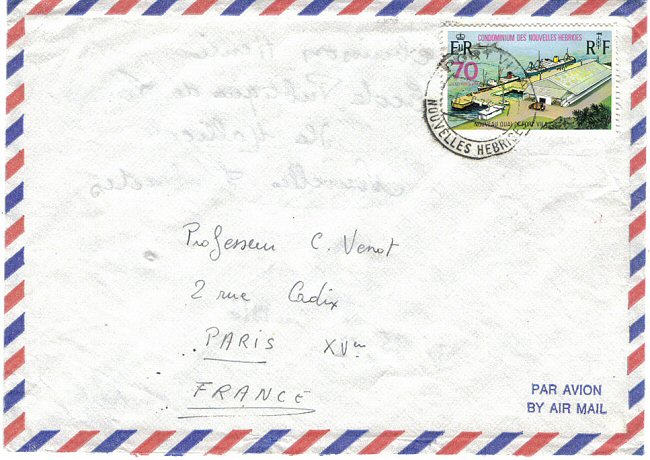 CONDOMINIUM DES NOUVELLES HEBRIDES
E II R
R F
70
NOUVEAU QUAI DE PORT VILA
NOUVELLES HEBRIDES
Professeur C. Venot
2 rue Cadix
PARIS XVem
FRANCE
PAR AVION
BY AIR MAIL